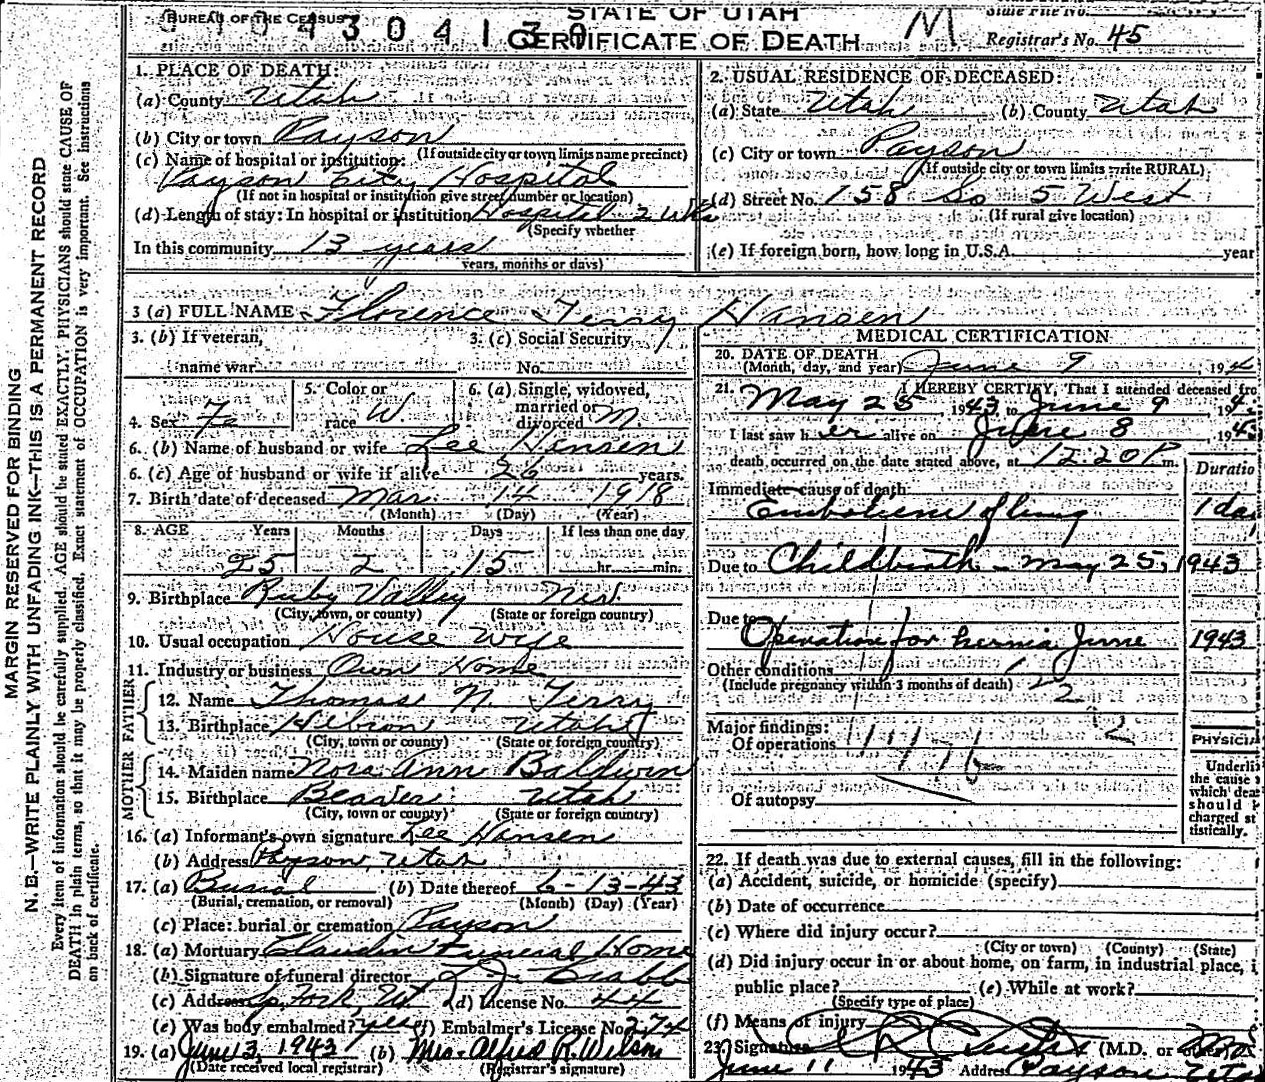 BUREAU OF THE CENSUS
STATE OF UTAH
CERTIFICATE OF DEATH
M
State File No.
Registrar's No. 45
MARGIN RESERVED FOR BINDING
N. B.—WRITE PLAINLY WITH UNFADING INK—THIS IS A PERMANENT RECORD
Every item of information should be carefully supplied. AGE should be stated EXACTLY. PHYSICIANS should state CAUSE OF
DEATH in plain terms, so that it may be properly classified. Exact statement of OCCUPATION is very important. See instructions
on back of certificate.
1. PLACE OF DEATH:
(a) County Utah
(b) City or town Payson
(If outside city or town limits name precinct)
(c) Name of hospital or institution:
Payson City Hospital
(If not in hospital or institution give street number or location)
(d) Length of stay: In hospital or institution Hospital 2 Wks
(Specify whether
In this community 13 years
years, months or days)
2. USUAL RESIDENCE OF DECEASED:
(a) State Utah (b) County Utah
(c) City or town Payson
(If outside city or town limits write RURAL)
(d) Street No. 158 So 5 West
(If rural give location)
(e) If foreign born, how long in U.S.A. year
3 (a) FULL NAME Florence Terry Hansen
3. (b) If veteran, 3. (c) Social Security
name war No.
4. Sex Fe 5. Color or race W 6. (a) Single, widowed, married or divorced M.
6. (b) Name of husband or wife Lee Hansen
6. (c) Age of husband or wife if alive 26 years.
7. Birth date of deceased Mar. 14 1918
(Month) (Day) (Year)
8. AGE Years Months Days If less than one day
25 2 15 hr. min.
9. Birthplace Ruby Valley Nev.
(City, town, or county) (State or foreign country)
10. Usual occupation House Wife
11. Industry or business Own Home
FATHER
12. Name Thomas N. Terry
13. Birthplace Hebron Utah
(City, town or county) (State or foreign country)
MOTHER
14. Maiden name Nora Ann Baldwin
15. Birthplace Beaver Utah
(City, town or county) (State or foreign country)
16. (a) Informant's own signature Lee Hansen
(b) Address Payson, Utah
17. (a) Burial (b) Date thereof 6-13-43
(Burial, cremation, or removal) (Month) (Day) (Year)
(c) Place: burial or cremation Payson
18. (a) Mortuary Claudin Funeral Home
(b) Signature of funeral director
(c) Address Sp. Fork, Ut. (d) License No. 44
(e) Was body embalmed? yes (f) Embalmer's License No. 274
19. (a) June 13, 1943 (b) Mrs. Alfred R. Wilson
(Date received local registrar) (Registrar's signature)
MEDICAL CERTIFICATION
20. DATE OF DEATH
(Month, day, and year) June 9, 194
21. I HEREBY CERTIFY, That I attended deceased fro
May 25, 1943, to June 9, 194
I last saw her alive on June 8, 194
death occurred on the date stated above, at 12:20 P. m.
Duratio
Immediate cause of death
Embolism of lung 1 da
Due to Childbirth - May 25, 1943
Due to
Operation for hernia June 1943
Other conditions
(Include pregnancy within 3 months of death)
Major findings:
Of operations
Of autopsy
PHYSICIA
Underli
the cause
which dea
should
charged st
tistically.
22. If death was due to external causes, fill in the following:
(a) Accident, suicide, or homicide (specify)
(b) Date of occurrence
(c) Where did injury occur?
(City or town) (County) (State)
(d) Did injury occur in or about home, on farm, in industrial place, i
public place? (e) While at work?
(Specify type of place)
(f) Means of injury
23. Signature (M.D. or
June 11 1943 Address Payson Utah